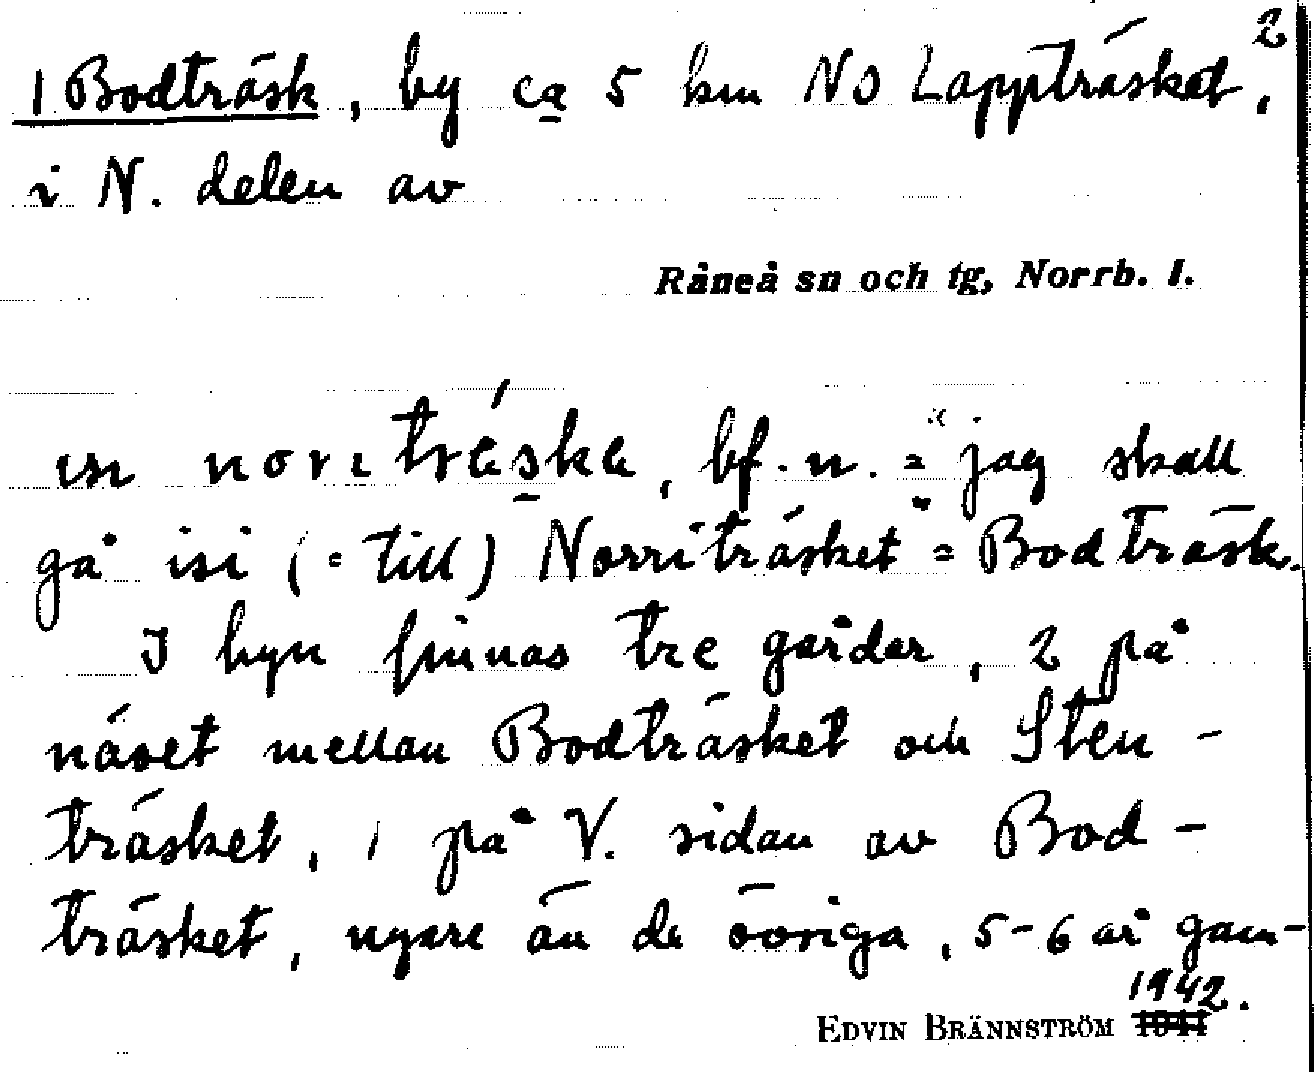 1 Bodträsk, by ca 5 km NO Lappträsket, 2
i N. delen av
Råneå sn och tg, Norrb. l.
isi noriträska, bf. n. = "jag skall
gå isi (= till) Norriträsket" = Bodträsk.
I byn finnas tre gårdar, 2 på
näset mellan Bodträsket och Sten-
träsket, 1 på V. sidan av Bod-
träsket, nyare än de övriga, 5-6 år gam-
1942.
EDVIN BRÄNNSTRÖM 1941